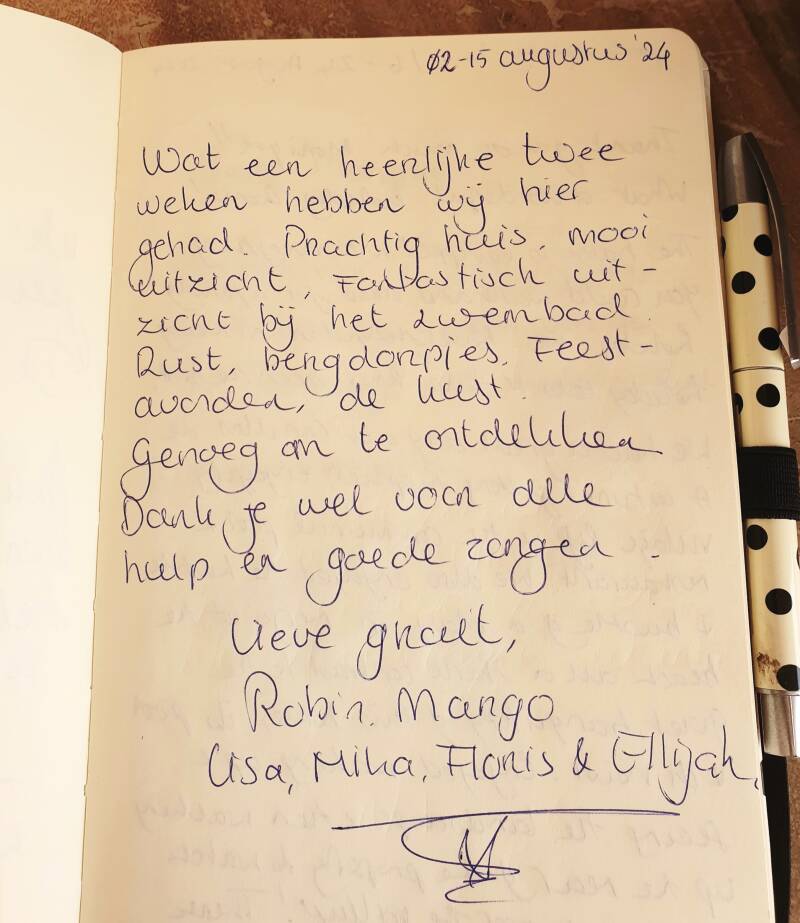 02-15 augustus '24
Wat een heerlijke twee
weken hebben wij hier
gehad. Prachtig huis, mooi
uitzicht, Fantastisch uit-
zicht bij het zwembad.
Rust, bergdorpjes, Feest-
avonden, de kust.
Genoeg om te ontdekken
Dank je wel voor alle
hulp en goede zorgen.
Lieve groet,
Robin, Mango
Lisa, Mika, Floris & Ellijah.